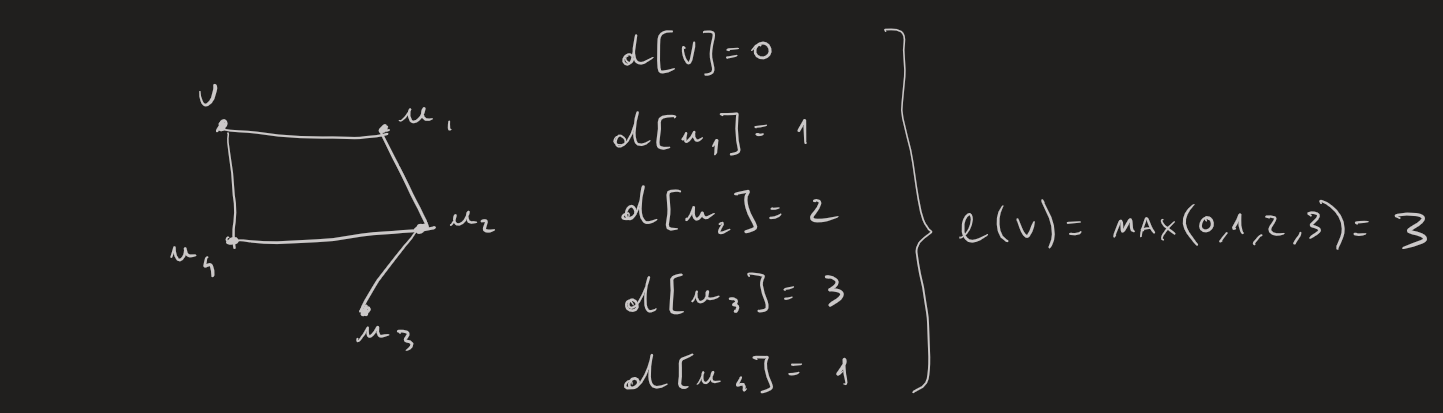 v
u₁
u₂
u₄
u₃
d[v]=0
d[u₁]=1
d[u₂]=2
d[u₃]=3
d[u₄]=1
e(v)= MAX(0,1,2,3)=3